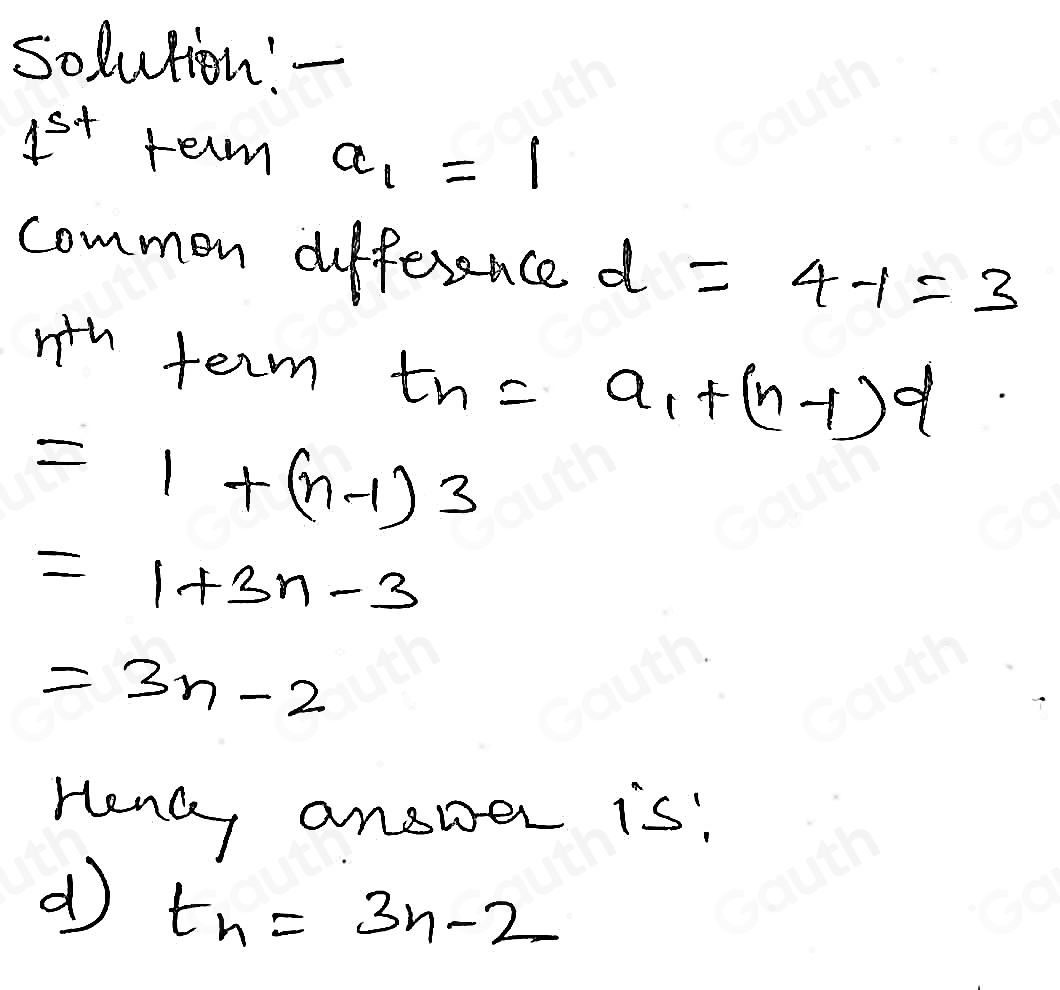 Solution:-
1st term a₁ = 1
Common difference d = 4-1 = 3
nth term tn = a₁+(n-1)d
= 1 +(n-1) 3
= 1+3n-3
= 3n-2
Hence, answer is:
d) tn = 3n-2